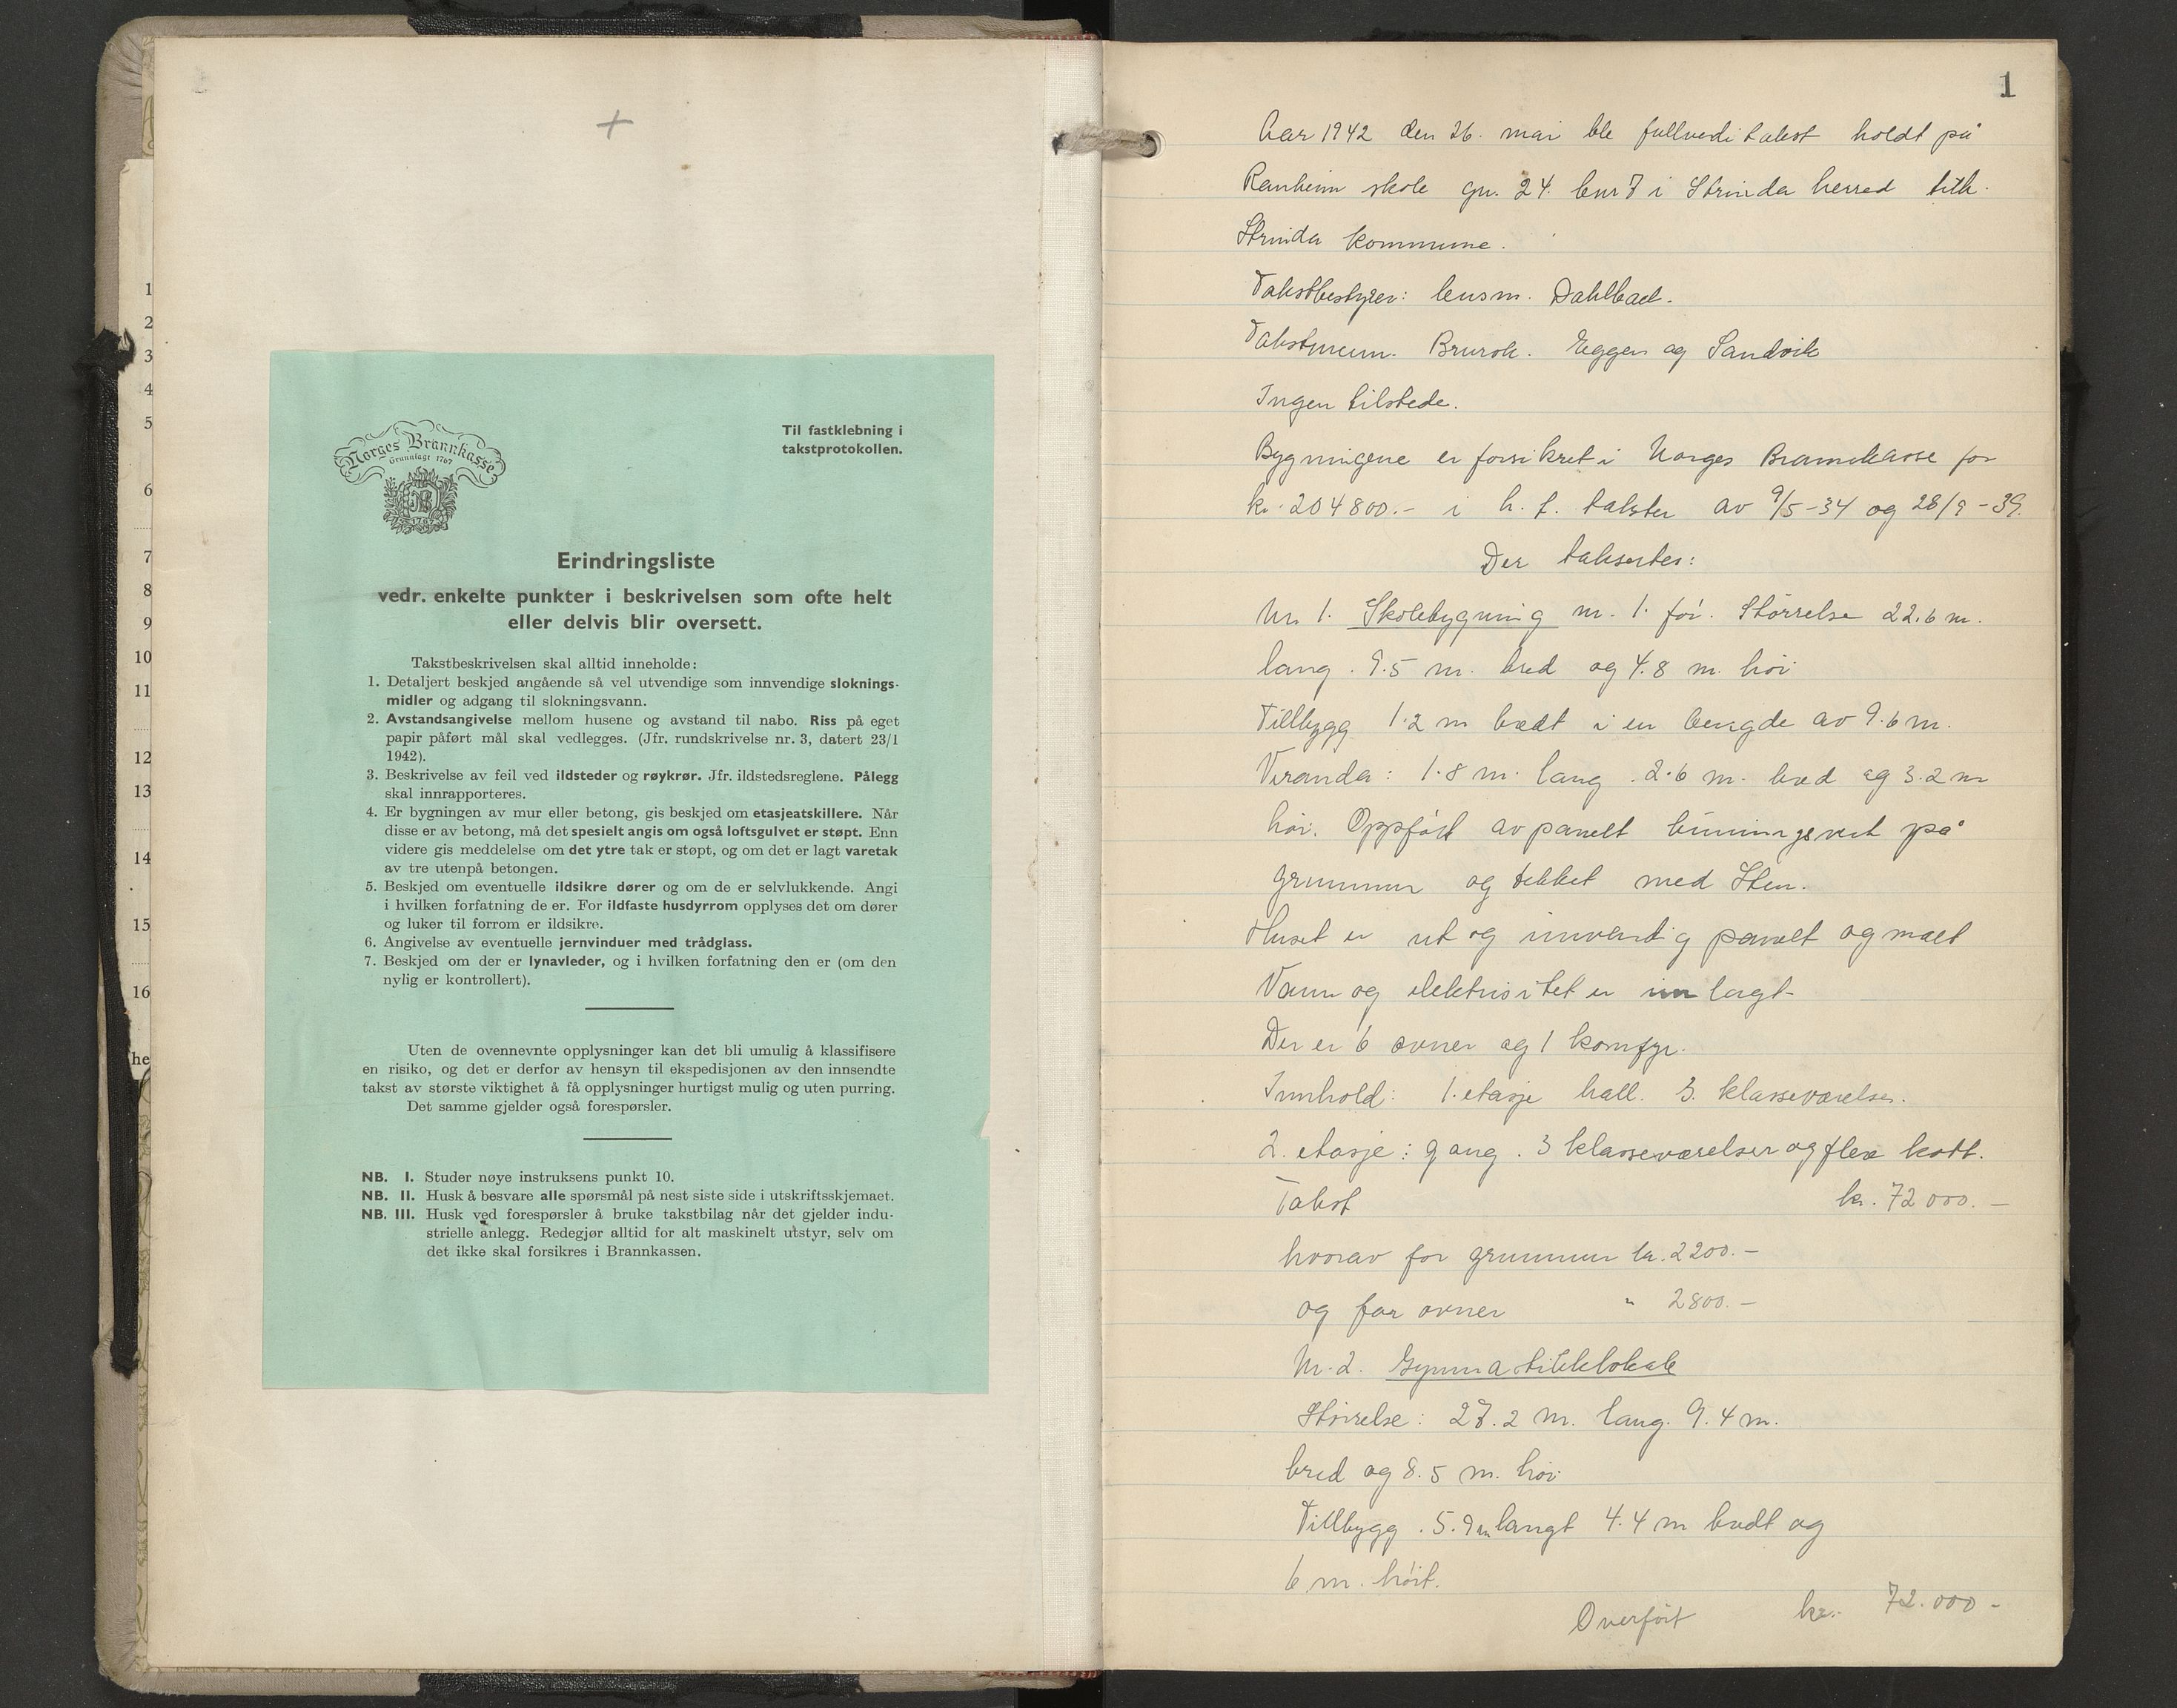 1
2
3
4
5
6
7
8
9
10
11
12
13
14
15
16
he
Norges Brannkasse
Grunnlagt 1767
NB
1767
Til fastklebning i
takstprotokollen.
Erindringsliste
vedr. enkelte punkter i beskrivelsen som ofte helt
eller delvis blir oversett.
Takstbeskrivelsen skal alltid inneholde:
1. Detaljert beskjed angående så vel utvendige som innvendige sloknings-
midler og adgang til slokningsvann.
2. Avstandsangivelse mellom husene og avstand til nabo. Riss på eget
papir påført mål skal vedlegges. (Jfr. rundskrivelse nr. 3, datert 23/1
1942).
3. Beskrivelse av feil ved ildsteder og røykrør. Jfr. ildstedsreglene. Pålegg
skal innrapporteres.
4. Er bygningen av mur eller betong, gis beskjed om etasjeatskillere. Når
disse er av betong, må det spesielt angis om også loftsgulvet er støpt. Enn
videre gis meddelelse om det ytre tak er støpt, og om det er lagt varetak
av tre utenpå betongen.
5. Beskjed om eventuelle ildsikre dører og om de er selvlukkende. Angi
i hvilken forfatning de er. For ildfaste husdyrrom opplyses det om dører
og luker til forrom er ildsikre.
6. Angivelse av eventuelle jernvinduer med trådglass.
7. Beskjed om der er lynavleder, og i hvilken forfatning den er (om den
nylig er kontrollert).
Uten de ovennevnte opplysninger kan det bli umulig å klassifisere
en risiko, og det er derfor av hensyn til ekspedisjonen av den innsendte
takst av største viktighet å få opplysninger hurtigst mulig og uten purring.
Det samme gjelder også forespørsler.
NB. I. Studer nøye instruksens punkt 10.
NB. II. Husk å besvare alle spørsmål på nest siste side i utskriftsskjemaet.
NB. III. Husk ved forespørsler å bruke takstbilag når det gjelder indu-
strielle anlegg. Redegjør alltid for alt maskinelt utstyr, selv om
det ikke skal forsikres i Brannkassen.
1
Aar 1942 den 26. mai ble fullverditakst holdt på
Ranheim skole gn. 24. bnr 7 i Strinda herred tilh.
Strinda kommune.
Takstbestyrer: lensm. Dahlback.
Takstmenn. Brurok. Eggen og Sandvik
Ingen tilstede.
Bygningene er forsikret i Norges Brannkasse for
kr. 204800.- i h. t. takster av 9/5-34 og 28/9-39.
Der taksertes:
Nr. 1. Skolebygning nr. 1. før. Størrelse 22.6 m.
lang. 9.5 m. bred og 4.8 m. høi
Tillbygg 1.2 m bredt i en lengde av 9.6 m.
Veranda: 1.8 m. lang. 2.6 m. bred og 3.2 m
høi. Oppført av panelt binningsverk på
grunnmur og tekket med Sten.
Huset er ut og innvendig panelt og malt
Vann og elektrisitet er innlagt
Der er 6 ovner og 1 komfyr.
Innhold: 1. etasje hall. 3. klasseværelser.
2. etasje: gang. 3 klasseværelser og flere kott.
Takst kr. 72000.-
hvorav for grunnmur kr. 2200.-
og for ovner " 2800.-
Nr. 2. Gymnatikklokale
Størrelse: 27.2 m. lang. 9.4 m.
bred og 8.5 m. høi
Tillbygg. 5.9 m langt 4.4 m bredt og
6 m. høit.
Overført kr. 72.000-